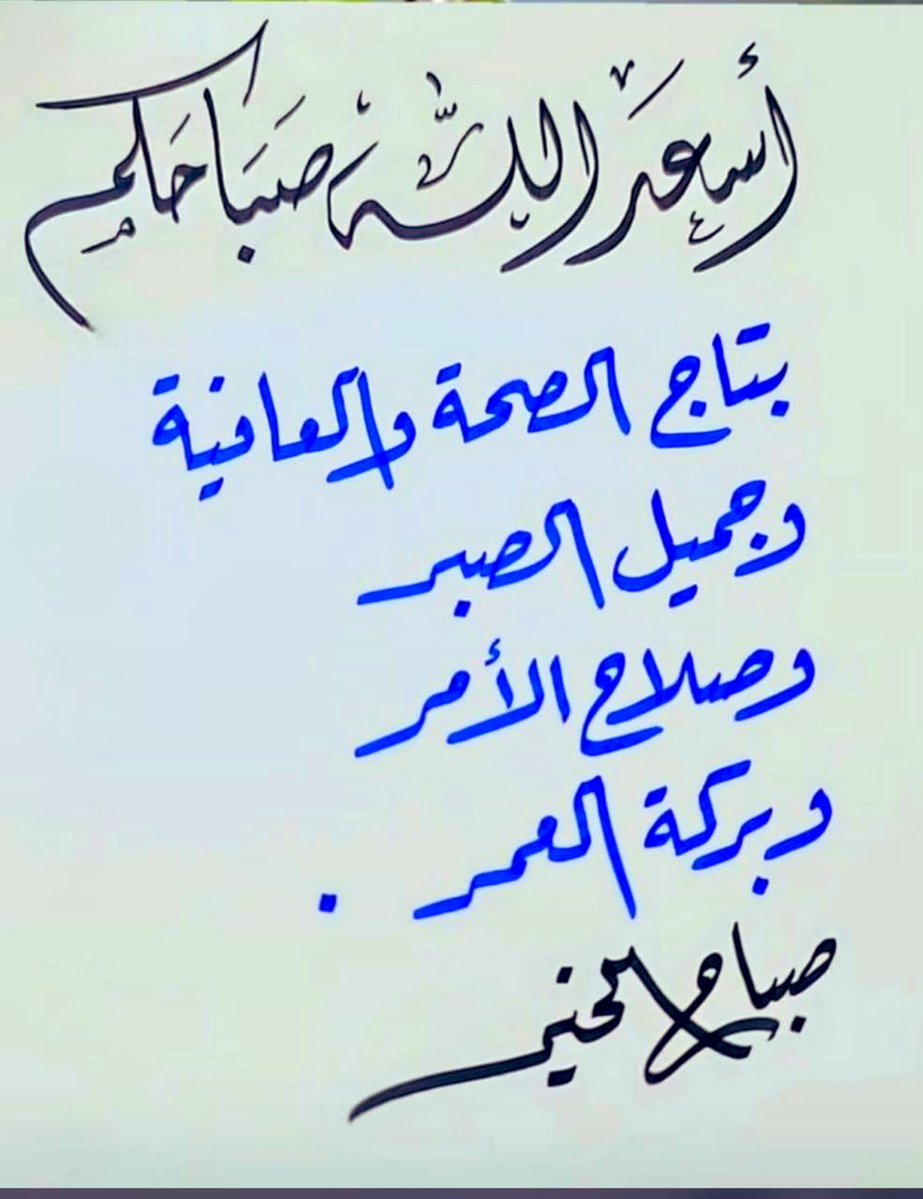 أسعدَ اللّهُ صَبَاحَكم
بتاج الصحة والعافية
وجميل الصبر
وصلاح الأمر
وبركة العمر .
صباح الخير